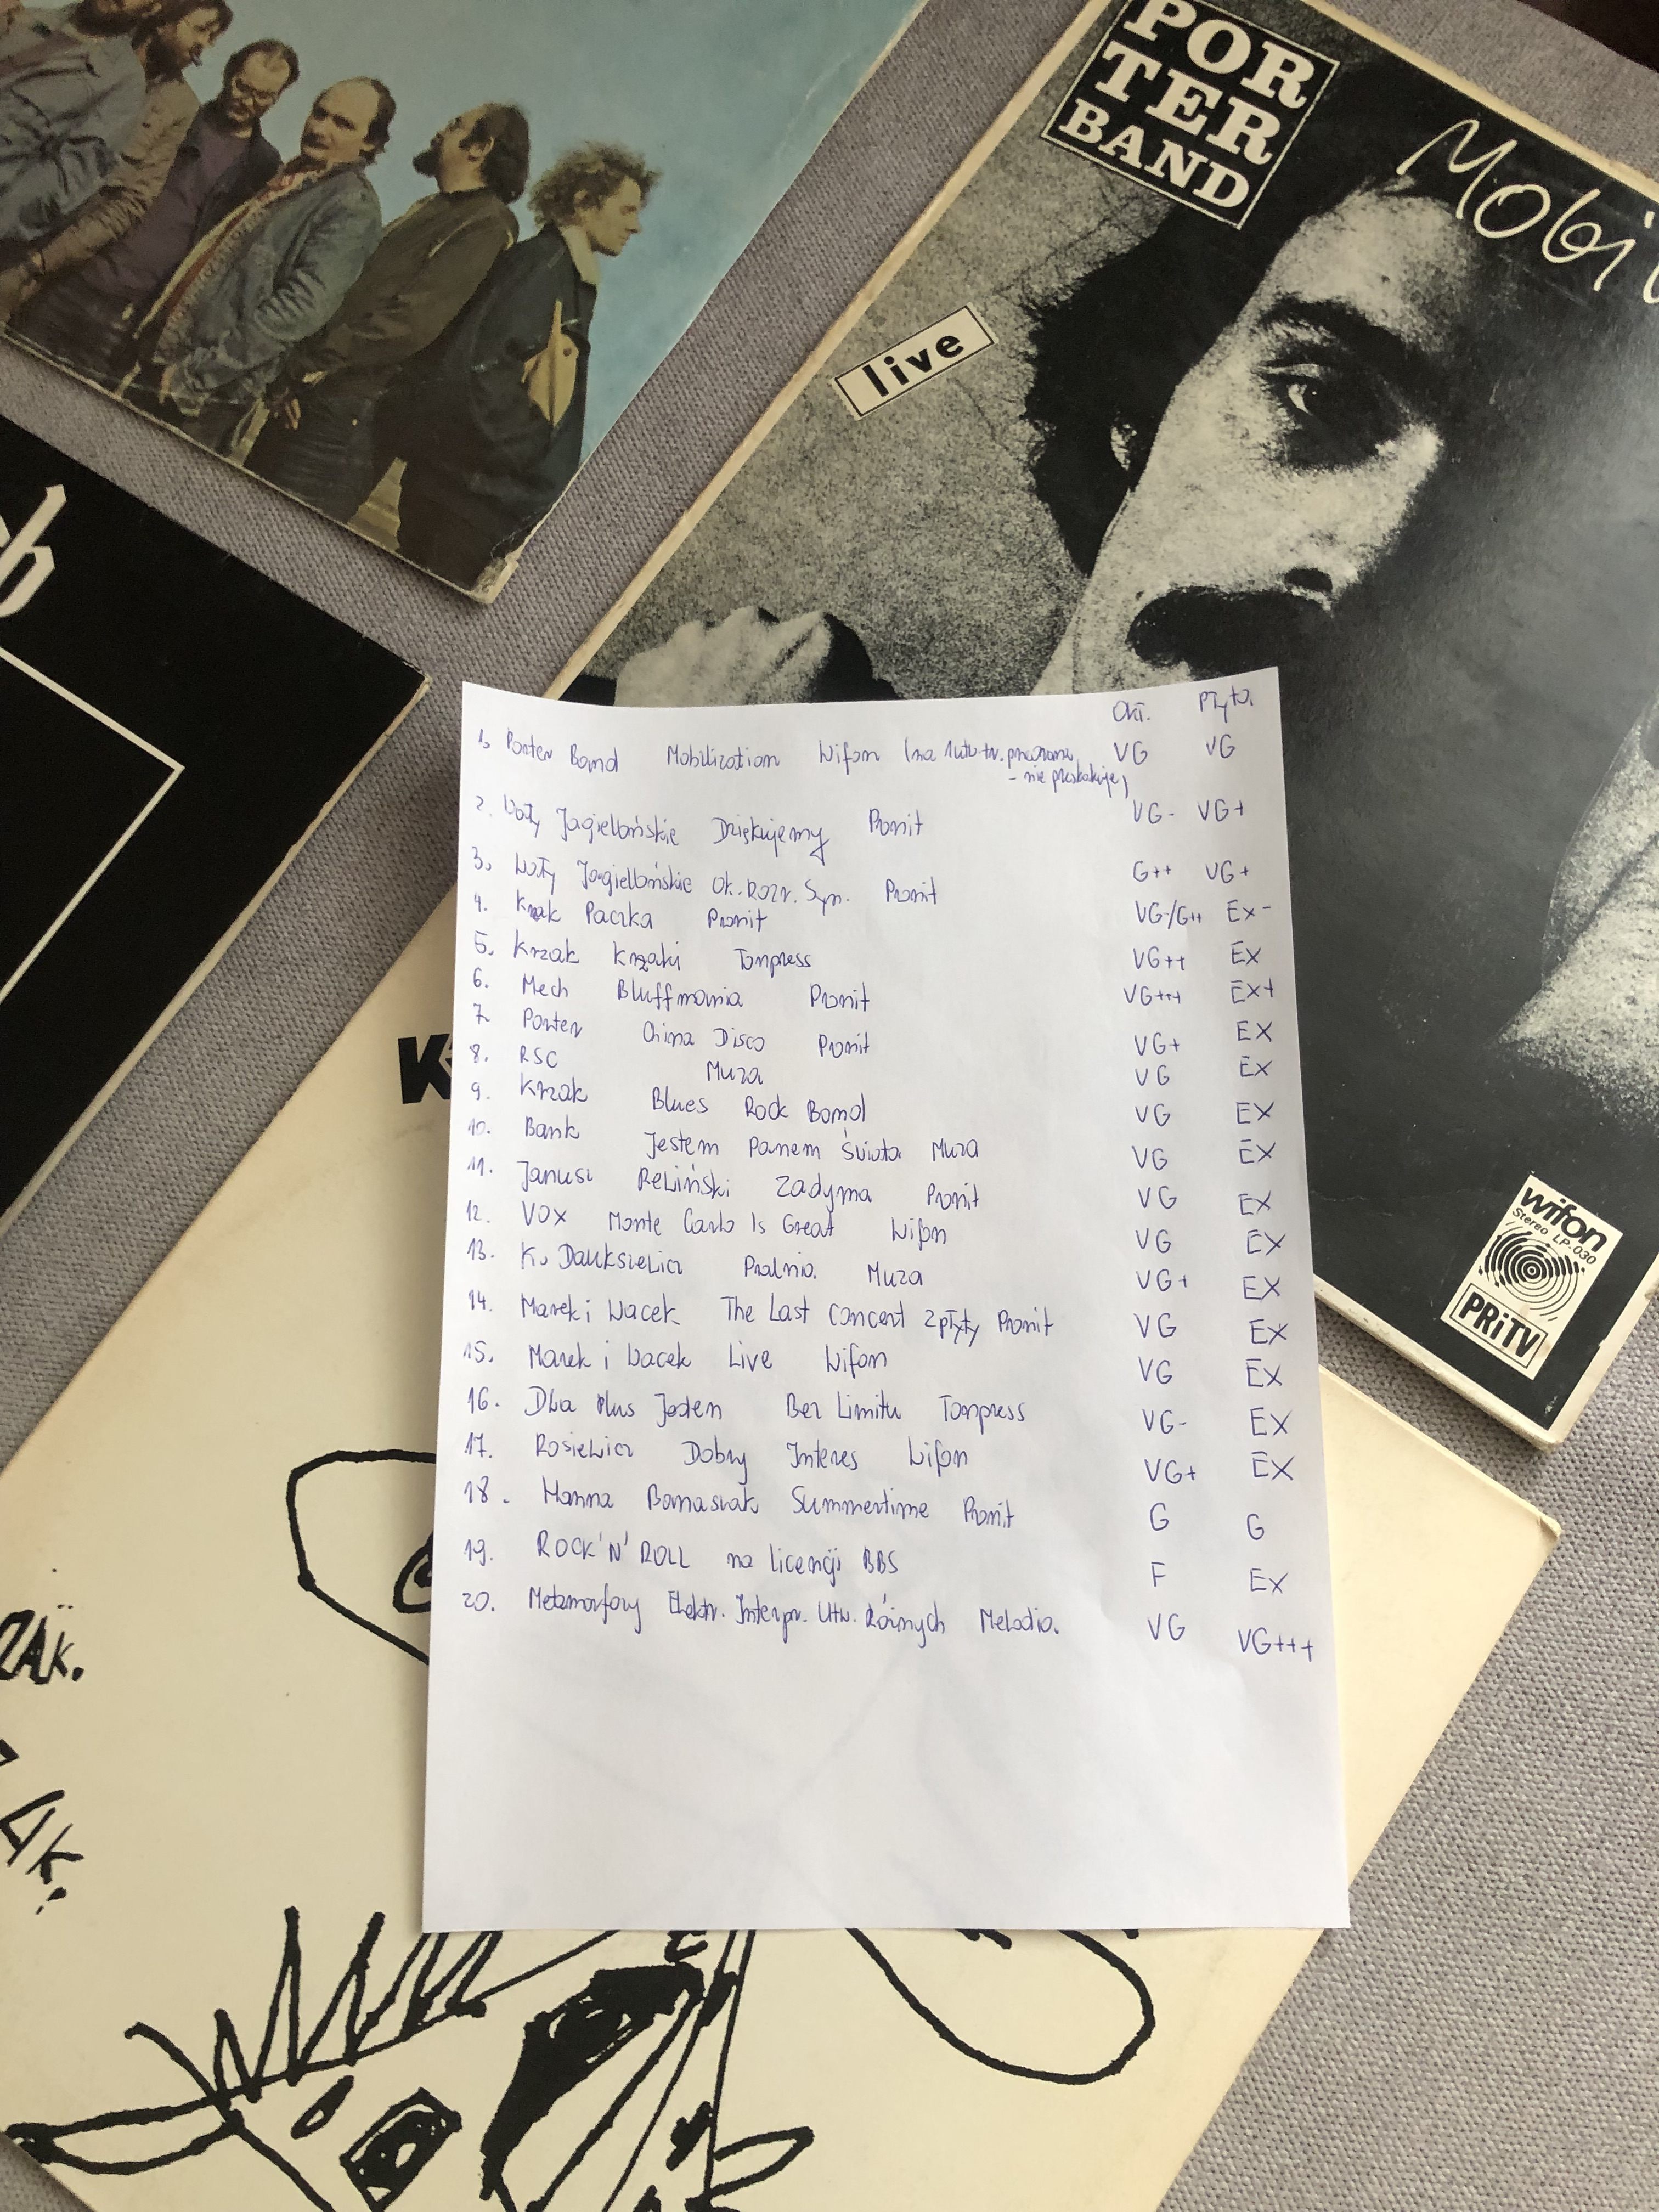 POR
TER
BAND
Mobi
live
Okł. Płyta.
1. Porter Band Mobilization Wifon (na 1 utw. tr. VG VG
- nie przeskakuje)
2. Wały Jagiellońskie Dziękujemy Pronit VG- VG+
3. Wały Jagiellońskie Ok. Rozr. Syn. Pronit G++ VG+
4. Krzak Paczka Pronit VG-/G++ Ex-
5. Krzak Krzaki Tonpress VG++ EX
6. Mech Bluffmania Pronit VG+++ EX+
7. Porter China Disco Pronit VG+ EX
8. RSC Muza VG EX
9. Krzak Blues Rock Band VG EX
10. Bank Jestem Panem Świata Muza VG EX
11. Janusz Reliński Zadyma Pronit VG EX
12. VOX Monte Carlo Is Great Wifon VG EX
13. K. Daukszewicz Pralnia. Muza VG+ EX
14. Marek i Wacek The Last Concert 2 płyty Pronit VG EX
15. Marek i Wacek Live Wifon VG EX
16. Dwa Plus Jeden Bez Limitu Tonpress VG- EX
17. Rosiewicz Dobry Interes Wifon VG+ EX
18. Hanna Banaszak Summertime Pronit G G
19. ROCK'N'ROLL na licencji BBS F EX
20. Metamorfozy Elektr. Interpr. Utw. Różnych Melodia. VG VG+++
wifon
Stereo LP-030
PRiTV
K
ZAK.